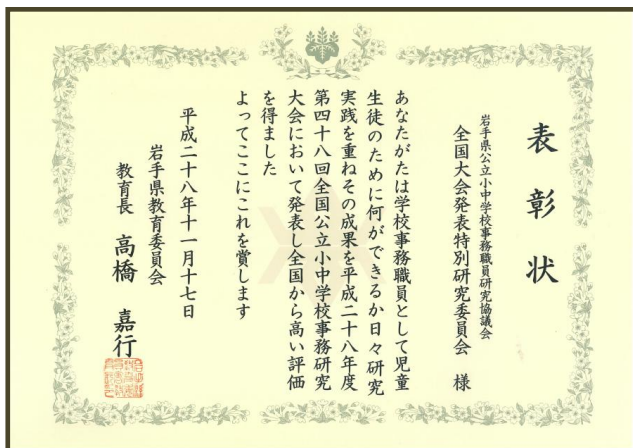 表彰状
岩手県公立小中学校事務職員研究協議会
全国大会発表特別研究委員会 様
あなたがたは学校事務職員として児童
生徒のために何ができるか日々研究
実践を重ねその成果を平成二十八年度
第四十八回全国公立小中学校事務研究
大会において発表し全国から高い評価
を得ました
よってここにこれを賞します
平成二十八年十一月十七日
岩手県教育委員会
教育長 高橋 嘉行